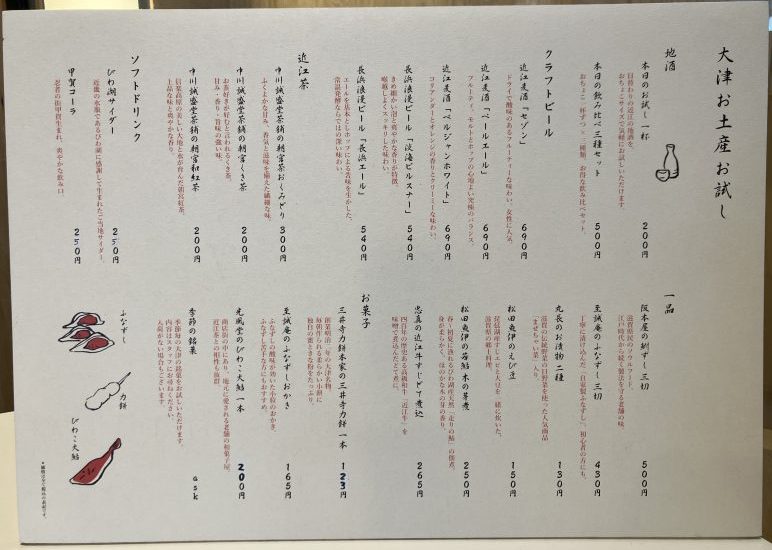 大津お土産お試し
地酒
本日のお試し 一杯
200円
日替わりの近江の地酒を、
おちょこサイズで気軽にお試しいただけます。
本日の飲み比べ 三種セット
500円
おちょこ一杯ずつ×三種類。お得な飲み比べセット。
クラフトビール
近江麦酒「セゾン」
690円
ドライで酸味のあるフルーティーな味わい。女性に人気。
近江麦酒「ペールエール」
690円
フルーティ。モルトとホップの心地よい究極のバランス。
近江麦酒「ベルジャンホワイト」
690円
コリアンダーとオレンジの香りとクリーミーな味わい。
長浜浪漫ビール「淡海ピルスナー」
540円
きめ細かい泡と爽やかな香りが特徴。
喉越しよくスッキリした味わい。
長浜浪漫ビール「長浜エール」
540円
エールを基本としホップによる苦味を生かした、
常温発酵ならではの深い味わい。
近江茶
中川誠盛堂茶舗の朝宮茶おくみどり
300円
ふくよかな甘み、香気と滋味を備えた繊細な味。
中川誠盛堂茶舗の朝宮くき茶
200円
お茶好きが好むと言われるくき茶。
甘み・香り・旨味の強い味。
中川誠盛堂茶舗の朝宮和紅茶
200円
信楽高原の美しい大地と水が育んだ朝宮紅茶。
上品な味と爽やかな香り
ソフトドリンク
びわ湖サイダー
250円
近畿の水瓶であるびわ湖に感謝して生まれたご当地サイダー。
甲賀コーラ
250円
忍者の街甲賀生まれ。爽やかな飲み口。
一品
阪本屋の鮒ずし 三切
500円
滋賀県民のソウルフード。
江戸時代から続く製法を守る老舗の味。
至誠庵のふなずし 三切
430円
丁寧に漬け込んだ「自家製ふなずし」。初心者の方にも。
丸長のお漬物 二種
130円
滋賀の伝統野菜の日野菜を使った人気商品
「ませちゃい菜」入り。
松田魚伊のえび豆
150円
琵琶湖産すじエビと大豆を一緒に炊いた、
滋賀県の郷土料理。
松田魚伊の若鮎 木の芽煮
250円
春〜初夏に漁れるびわ湖の天然「走りの鮎」の佃煮。
身が柔らかく、ほのかな木の芽の香り。
忠真の近江牛すじどて煮込
265円
四百年の歴史ある高級和牛「近江牛」を
味噌で煮込んだどて煮に。
お菓子
三井寺力餅本家の三井寺力餅 一本
123円
創業明治二年の大津名物。
毎朝作られる柔らかい小餅に
独自の蜜ときな粉をたっぷり。
至誠庵のふなずしおかき
165円
ふなずしの酸味が効いた小粒のおかき。
ふなずしが苦手な方にもおすすめ。
光風堂のびわこ大鮎 一本
200円
商店街の中にあり、地元に愛される老舗の和菓子屋。
近江茶との相性も抜群。
季節の銘菓
ask
季節毎の大津の銘菓をお試しいただけます。
内容はスタッフにお尋ねください。
入荷がない場合もございます。
ふなずし
力餅
びわこ大鮎